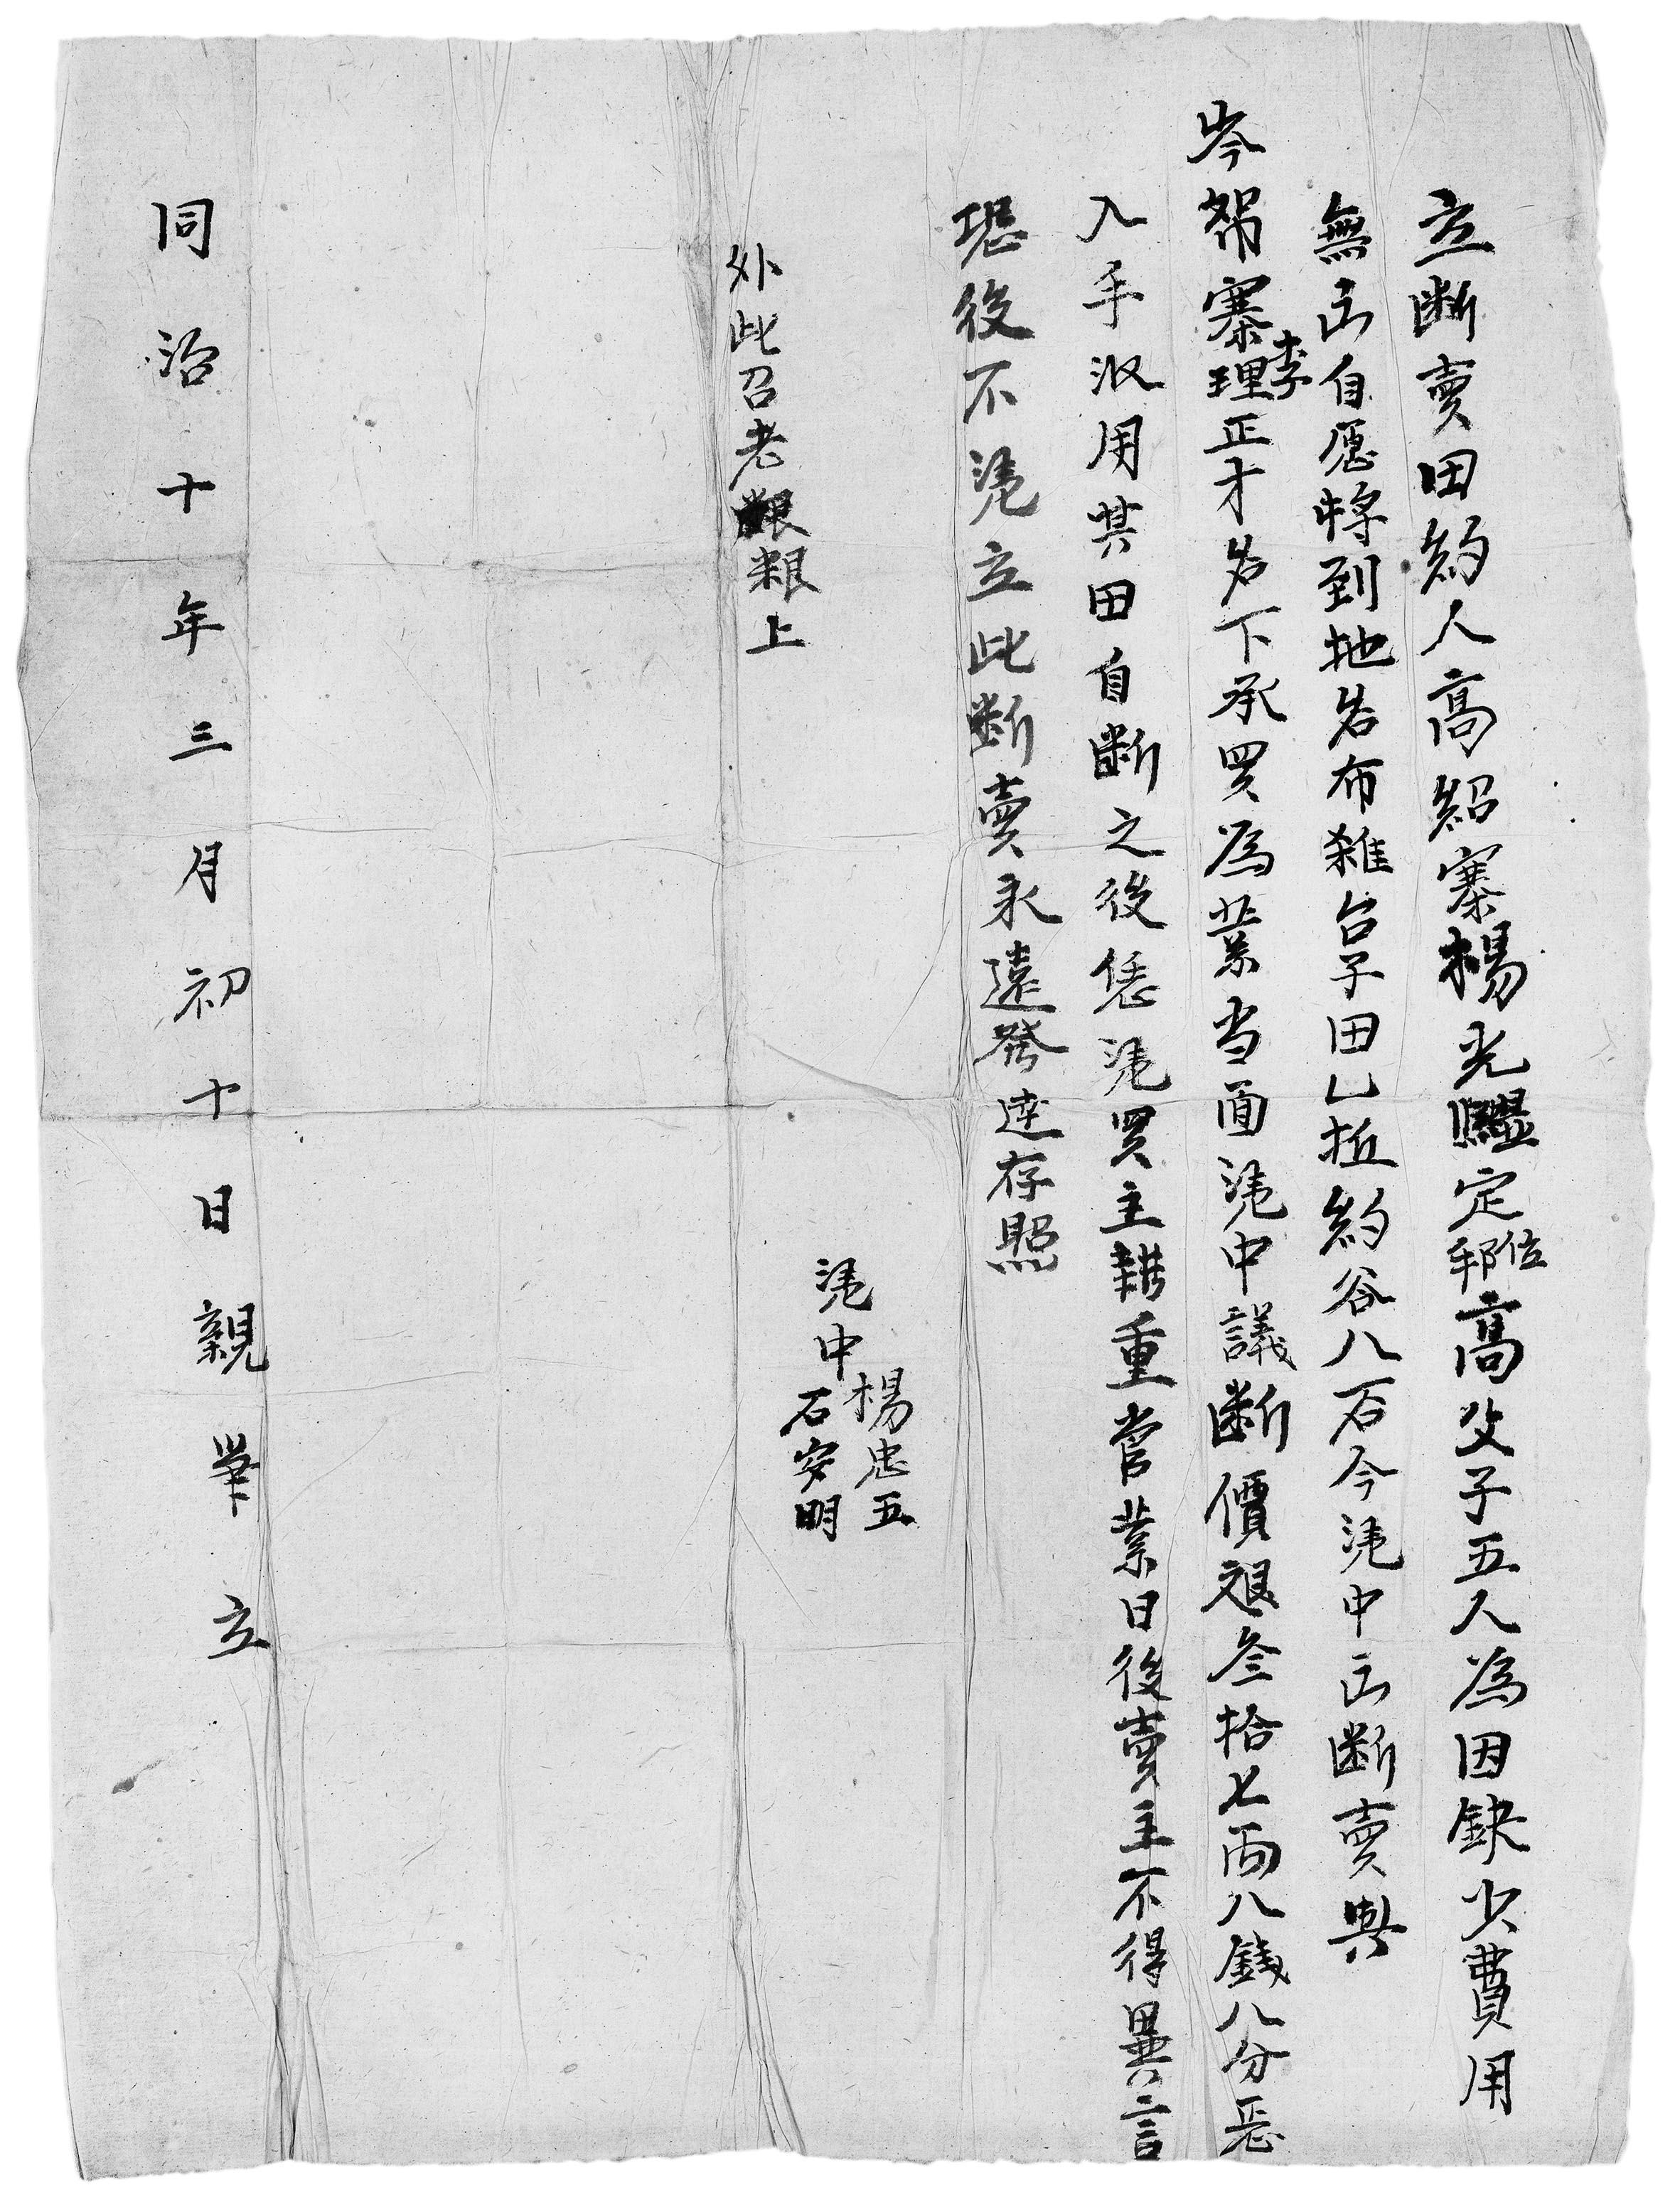 立断賣田約人高紹寨楊光䮾定邦位高父子五人為因缺少費用
無出自愿将到地名布雜台子田乚坵約谷八石今慿中出断賣與
岑幇寨理李正才名下承買為業当面慿中議断價艮叁拾七両八錢八分悉
入手收用其田自断之後恁慿買主耕重管業日後賣主不得異言
恐後不慿立此断賣永遠發達存照
慿中 楊忠五 石安明
外此召老粮上
同治十年三月初十日親筆立